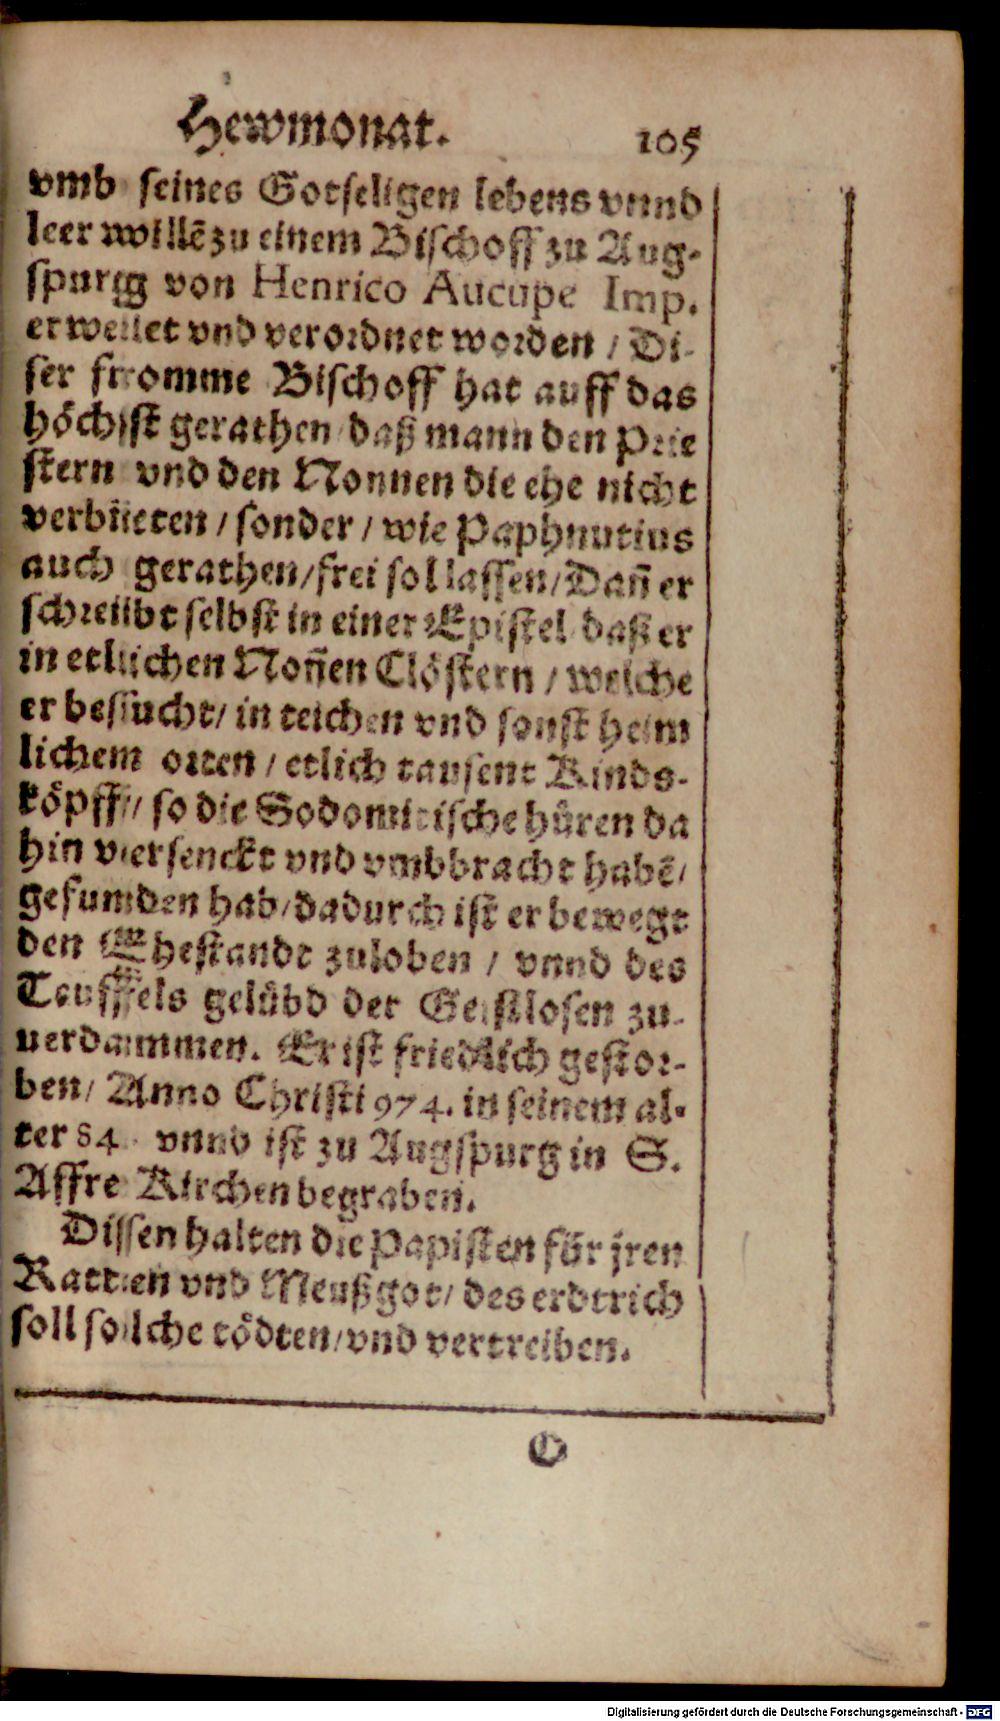 Hewmonat. 105
vmb seines Gotseligen lebens vnnd
leer willẽ zu einem Bischoff zu Aug-
spurg von Henrico Aucupe Imp.
erwellet vnd verordnet worden / Di-
ser fromme Bischoff hat auff das
höchst gerathen daß mann den Prie
stern vnd den Nonnen die ehe nicht
verbüeten / sonder / wie Paphnutius
auch gerathen / frei sol lassen / Dañ er
schreibt selbst in einer Epistel daß er
in etlichen Noñen Clöstern / welche
er besucht / in teichen vnd sonst heim
lichem orten / etlich tausent Kinds-
köpff / so die Sodomitische hůren da
hin versenckt vnd vmbbracht habẽ /
gefunden hab / dadurch ist er bewegt
den Ehestandt zuloben / vnnd des
Teuffels gelübd der Geistlosen zu-
uerdammen. Er ist friedlich gestor-
ben / Anno Christi 974. in seinem al-
ter 84. vnnd ist zu Augspurg in S.
Affre Kirchen begraben.
Dissen halten die Papisten für jren
Ratten vnd Meußgot / des erdtrich
soll solche tödten / vnd vertreiben.
O
Digitalisierung gefördert durch die Deutsche Forschungsgemeinschaft - DFG